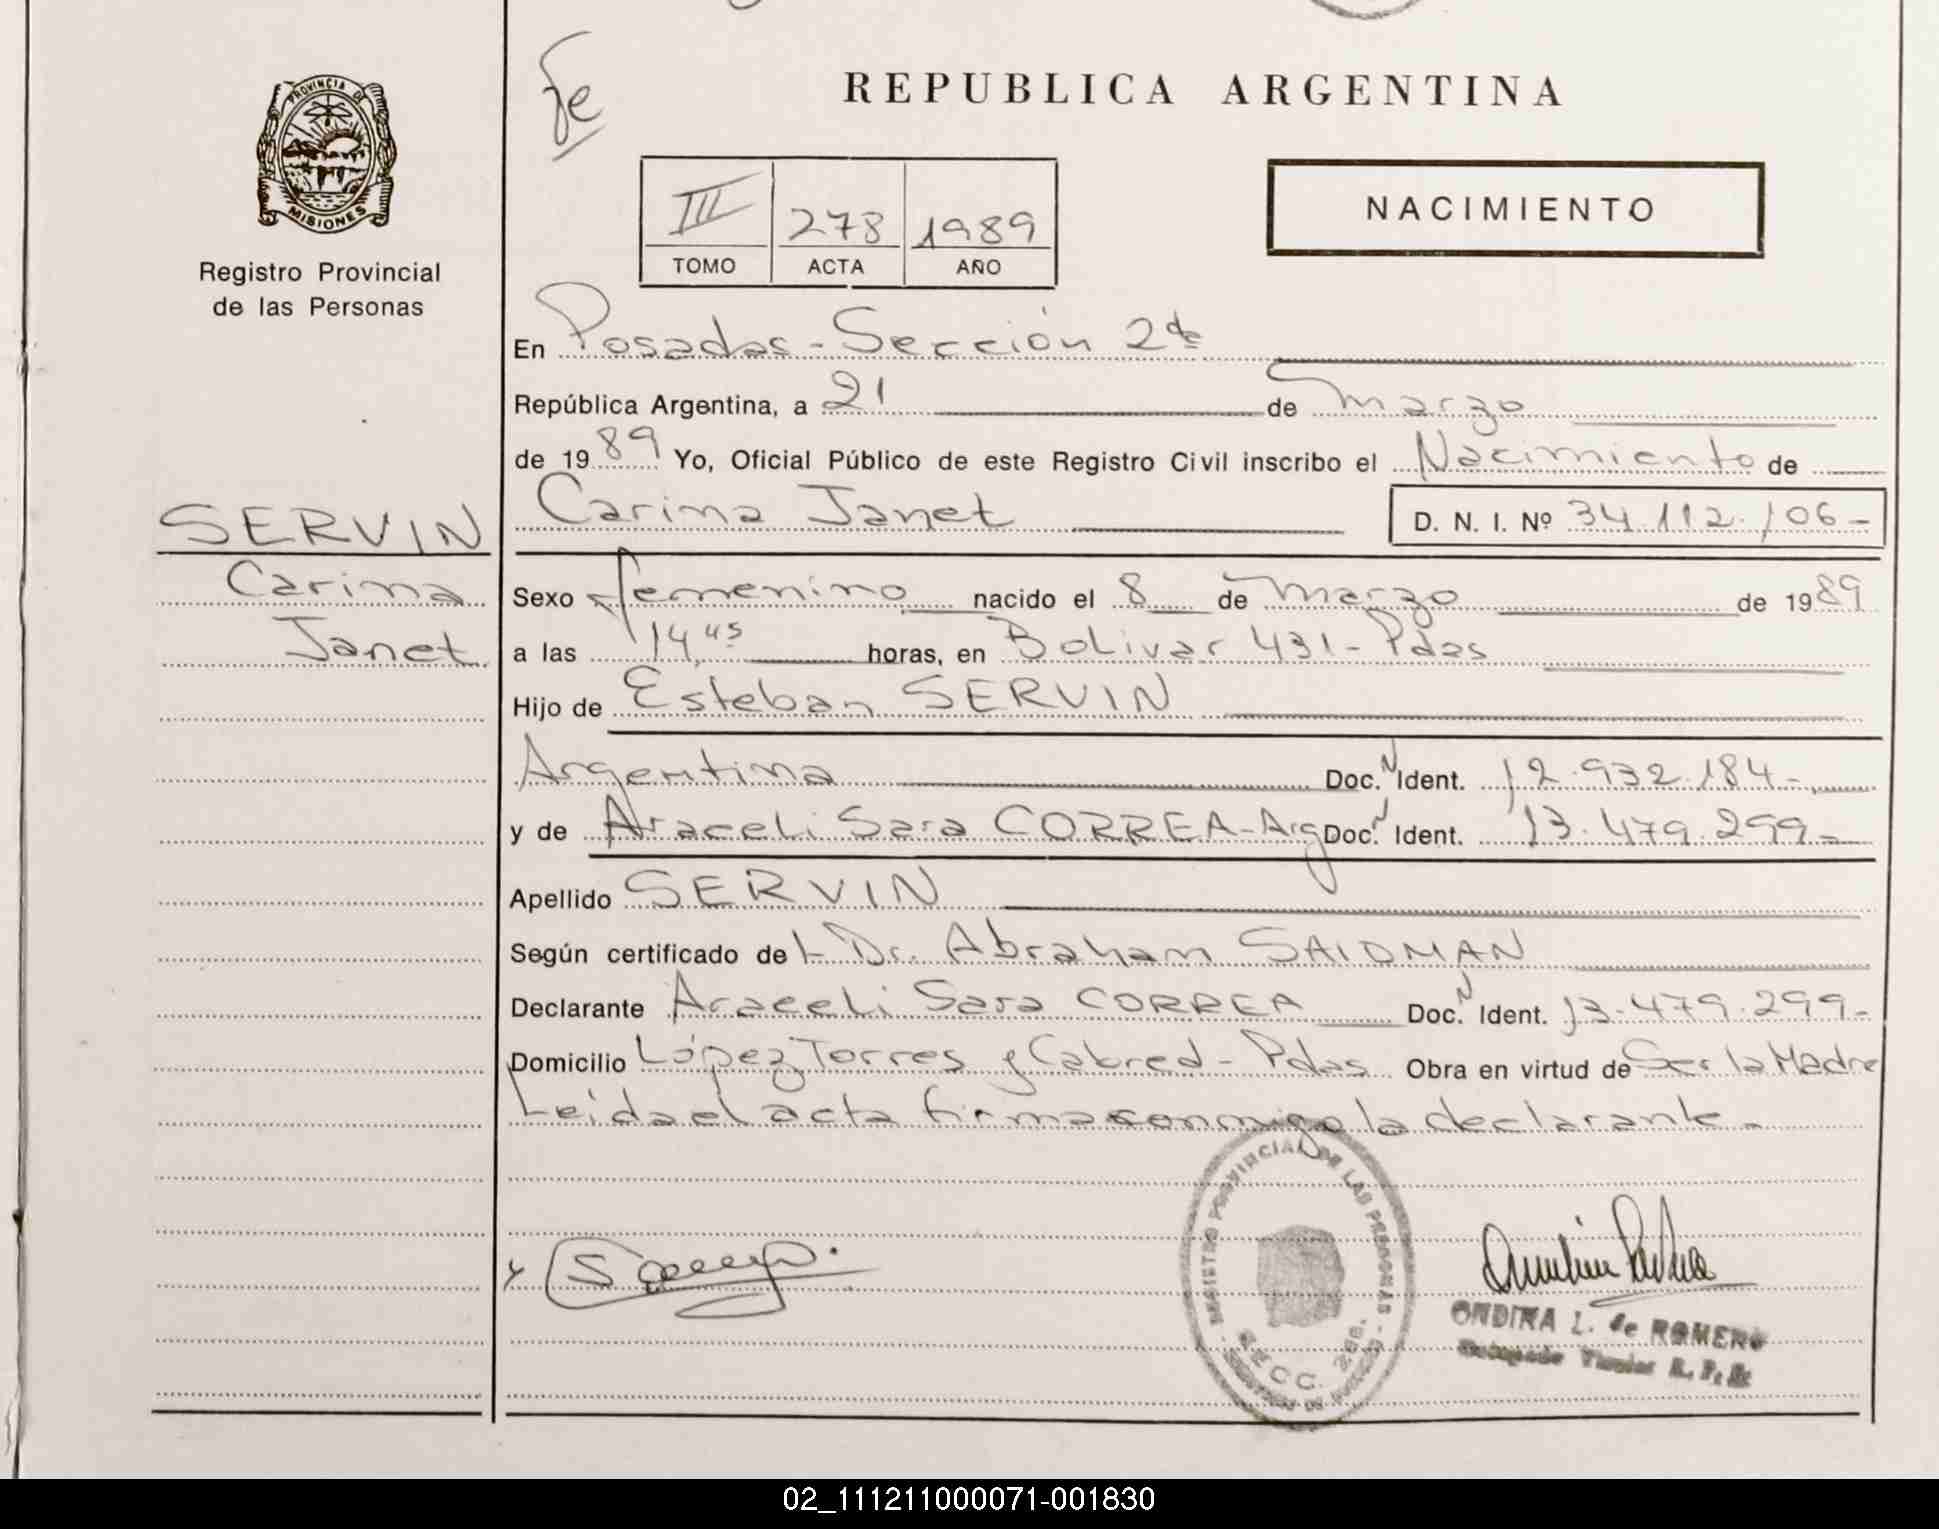 fe
REPUBLICA ARGENTINA
PROVINCIA DE
MISIONES
Registro Provincial
de las Personas
III 278 1989
TOMO ACTA AÑO
NACIMIENTO
En Posadas - Sección 2da
República Argentina, a 21 de Marzo
de 1989 Yo, Oficial Público de este Registro Civil inscribo el Nacimiento de
Carina Janet D. N. I. Nº 34.112.106-
SERVIN
Carina
Janet
Sexo femenino nacido el 8 de Marzo de 1989
a las 14,45 horas, en Bolivar 431 - Pdas
Hijo de Esteban SERVIN
Argentina Doc. N Ident. 12.932.184-
y de Araceli Sara CORREA - Arg Doc. N Ident. 13.479.299-
Apellido SERVIN
Según certificado del Dr. Abraham SAIDMAN
Declarante Araceli Sara CORREA Doc. N Ident. 13.479.299-
Domicilio López Torres y Cabred - Pdas Obra en virtud de Ser la Madre
Leida el acta firma conmigo la declarante -
REGISTRO PROVINCIAL DE LAS PERSONAS
SECC. 2da.
ONDINA L. de ROMERO
Titular R. P. P.
02_111211000071-001830